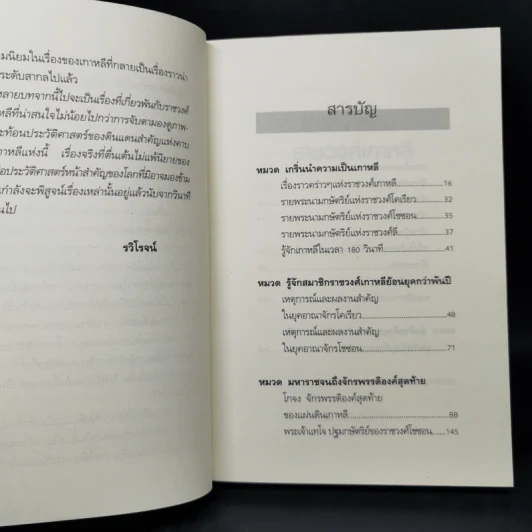 มนิยมในเรื่องของเกาหลีที่กลายเป็นเรื่องราวน่า
ระดับสากลไปแล้ว
หลายบทจากนี้ไปจะเป็นเรื่องที่เกี่ยวพันกับราชวงศ์
หลีที่น่าสนใจไม่น้อยไปกว่าการจับตามองดูภาพ-
ะท้อนประวัติศาสตร์ของดินแดนสำคัญแห่งคาบ
กาหลีแห่งนี้ เรื่องจริงที่ตื่นเต้นไม่แพ้นิยายของ
อประวัติศาสตร์หน้าสำคัญของโลกที่มิอาจมองข้าม
กำลังจะพิสูจน์เรื่องเหล่านั้นอยู่แล้วนับจากวินาที
นไป
รวิโรจน์
สารบัญ
หมวด เกริ่นนำความเป็นเกาหลี
เรื่องราวคร่าวๆแห่งราชวงศ์เกาหลี 16
รายพระนามกษัตริย์แห่งราชวงศ์โคเรียว 32
รายพระนามกษัตริย์แห่งราชวงศ์โชซอน 35
รายพระนามกษัตริย์แห่งราชวงศ์ลี 37
รู้จักเกาหลีในเวลา 180 วินาที 41
หมวด รู้จักสมาชิกราชวงศ์เกาหลีย้อนยุคกว่าพันปี
เหตุการณ์และผลงานสำคัญ
ในยุคอาณาจักรโคเรียว 48
เหตุการณ์และผลงานสำคัญ
ในยุคอาณาจักรโชซอน 71
หมวด มหาราชจนถึงจักรพรรดิองค์สุดท้าย
โกจง จักรพรรดิองค์สุดท้าย
ของแผ่นดินเกาหลี 88
พระเจ้าแทโจ ปฐมกษัตริย์ของราชวงศ์โชซอน 145